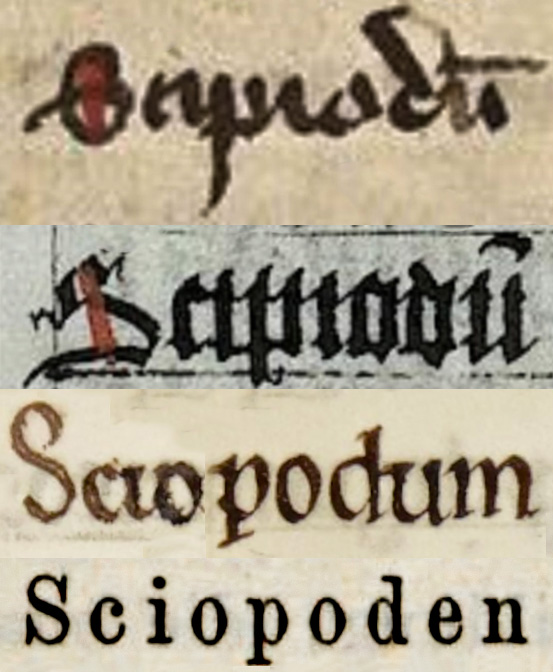 Scipiodū
Scipiodū
Sciopodum
Sciopoden